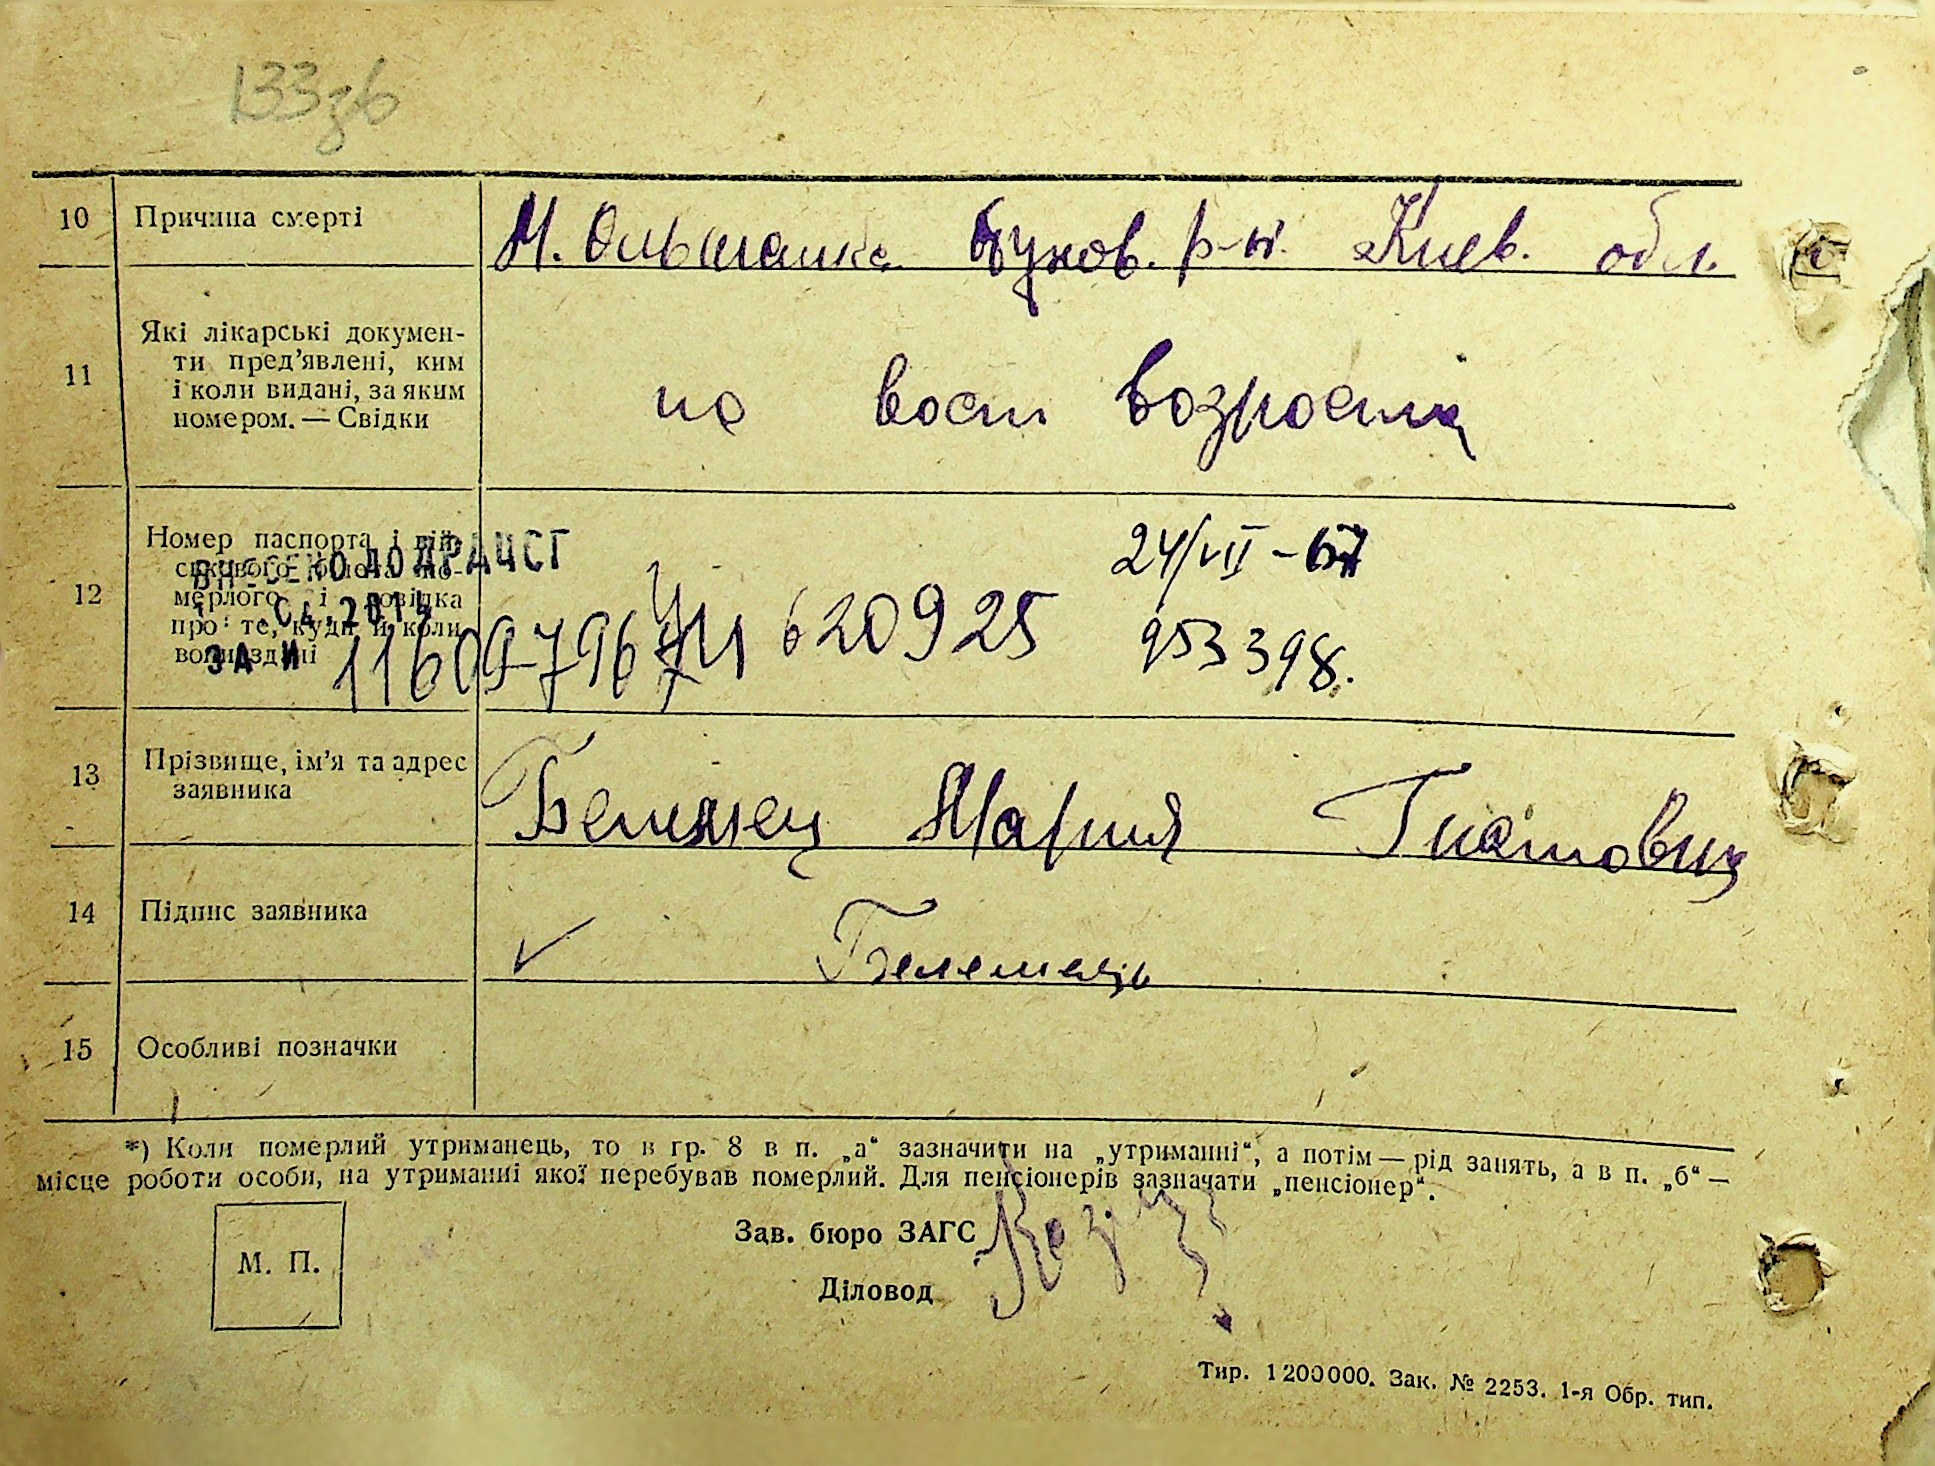 133зв
10 Причина смерті М. Ольшанка Буков. р-н. Киев. обл.
11 Які лікарські докумен-
ти пред’явлені, ким
і коли видані, за яким
номером. — Свідки
по восст возроста
12 Номер паспорта і вій-
ськового білета по-
мерлого і довідка
про те, куди й коли
вони здані
ВНЕСЕНО ДО ДРАЦСГ
ЗА №
24/VII-67
620925
953398.
13 Прізвище, ім’я та адрес
заявника
Мария Гнатовна
14 Підпис заявника
15 Особливі позначки
*) Коли померлий утриманець, то в гр. 8 в п. „а“ зазначити на „утриманні“, а потім — рід занять, а в п. „б“ —
місце роботи особи, на утриманні якої перебував померлий. Для пенсіонерів зазначати „пенсіонер“.
М. П.
Зав. бюро ЗАГС
Діловод
Тир. 1200000. Зак. № 2253. 1-я Обр. тип.